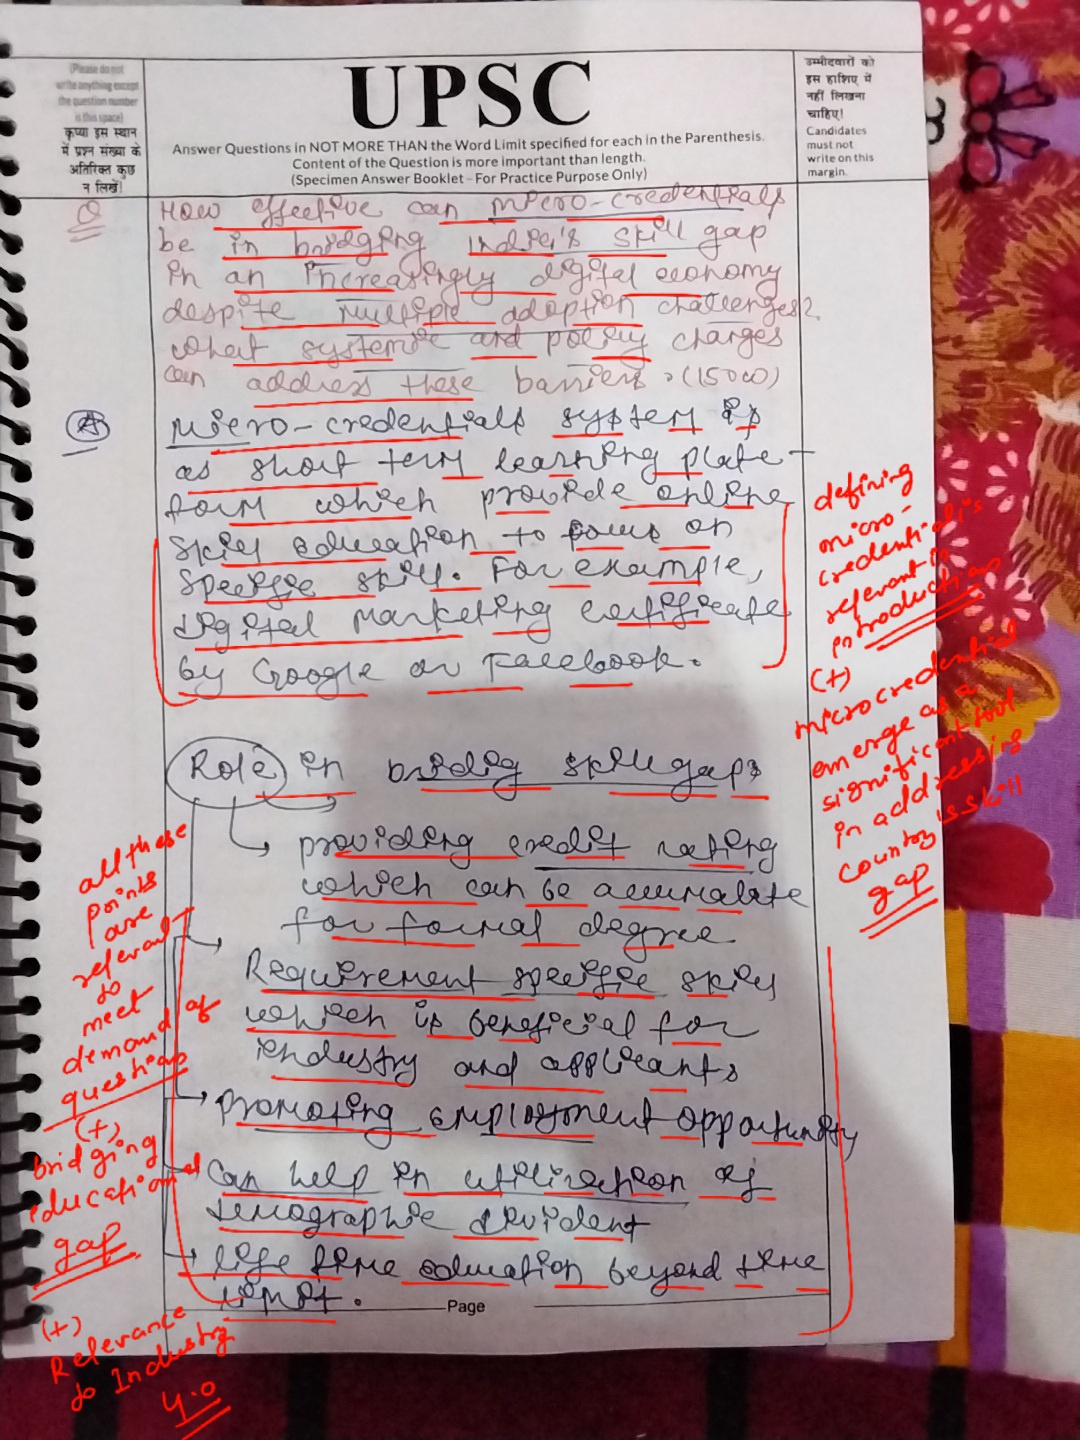 (Please do not
write anything except
the question number
in this space)
कृप्या इस स्थान
में प्रश्न संख्या के
अतिरिक्त कुछ
न लिखें!
UPSC
Answer Questions in NOT MORE THAN the Word Limit specified for each in the Parenthesis.
Content of the Question is more important than length.
(Specimen Answer Booklet - For Practice Purpose Only)
उम्मीदवारों को
इस हाशिए में
नहीं लिखना
चाहिए!
Candidates
must not
write on this
margin.
Q
How effective can micro-credentials
be in bridging India's skill gap
in an increasingly digital economy
despite multiple adoption challenges?
what systemic and policy changes
can address these barriers. (150w)
A
Micro-credentials system is
as short term learning plate-
form which provide online
skill education to focus on
specific skill. For example,
digital marketing certificate
by Google or Facebook.
defining
micro-
credential is
relevant in
introduction
(+)
microcredential
emerge as a
significant tool
in addressing
country's skill
gap
Role in briding skill gaps
providing credit rating
which can be accumalate
for formal degree
Requirement specific skill
which is beneficial for
industry and applicants
promoting employment opportunity
Can help in utilization of
demographic divident
life time education beyond time
limit.
all these
points
are
relevant
to
meet
demand of
question
(+)
bridging
educational
gap
(+)
Relevance
to Industry
4.0
Page